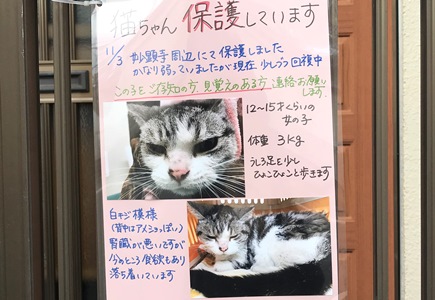 猫ちゃん保護しています
11/3 妙顕寺周辺にて保護しました
かなり弱っていましたが現在少しづつ回復中
この子をご存知の方、見覚えのある方、連絡お願いします。
12~15才くらいの
女の子
体重 3kg
うしろ足を少し
ひょこひょこと歩きます
白キジ模様
(背中はアメショっぽい)
腎臓が悪いですが
今のところ食欲もあり
落ち着いています